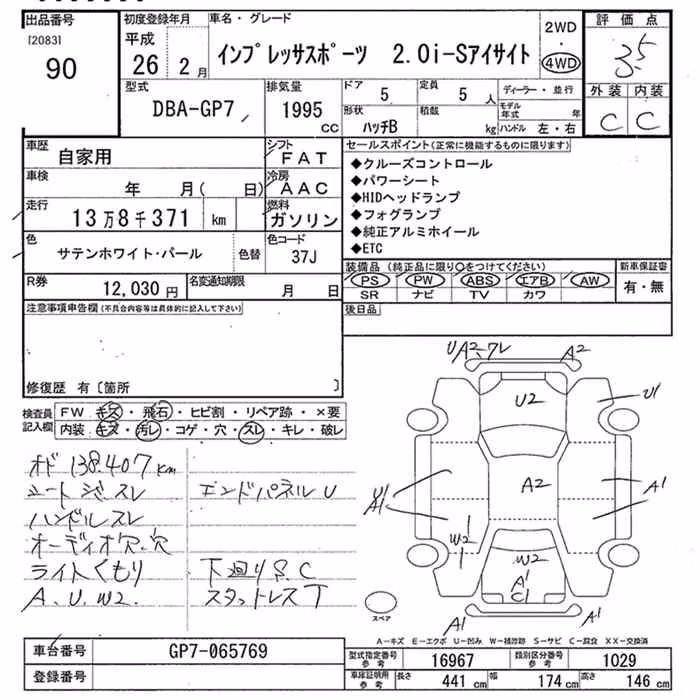 出品番号 初度登録年月 車名・グレード 2WD ・ 4WD 評価点
[2083] 平成
90 26 2月 インプレッサスポーツ 2.0i-Sアイサイト 3.5
型式 排気量 ドア 定員 ディーラー・並行 外装 内装
DBA-GP7 1995 cc 5 5人 モデル年式 年 C C
形状 積載
ハッチB kg ハンドル 左・右
車歴 自家用 シフト FAT セールスポイント(正常に機能するものに限ります)
車検 年 月( 日) 冷房 AAC
走行 13万8千371 km 燃料 ガソリン
色 サテンホワイト・パール 色替 色コード 37J
◆クルーズコントロール
◆パワーシート
◆HIDヘッドランプ
◆フォグランプ
◆純正アルミホイール
◆ETC
R券 12,030円 名変通知期限 月 日
装備品(純正品に限り○をつけてください) 新車保証書
PS PW ABS エアB AW 有・無
SR ナビ TV カワ
注意事項申告欄(不具合内容等は具体的に記入して下さい) 後日品
修復歴 有〔箇所 〕
検査員記入欄 FW キズ・飛石・ヒビ割・リペア跡・×要
内装 キズ・汚レ・コゲ・穴・スレ・キレ・破レ
オド 138.407km
シートシミスレ エンドパネルU
ハンドルスレ
オーディオ穴.穴
ライトくもり 下廻りS.C
A.U.W2 スタットレスT
UA2-ワレ A2
U2 U1
A2 A1
W2 W2
A1
C1
A1 A1
スペア
A-キズ E-エクボ U-凹み W-補修跡 S-サビ C-腐食 XX-交換済
車台番号 GP7-065769 型式指定番号 参考 16967 類別区分番号 参考 1029
登録番号 車庫証明用 参考 長さ 441cm 幅 174cm 高さ 146cm